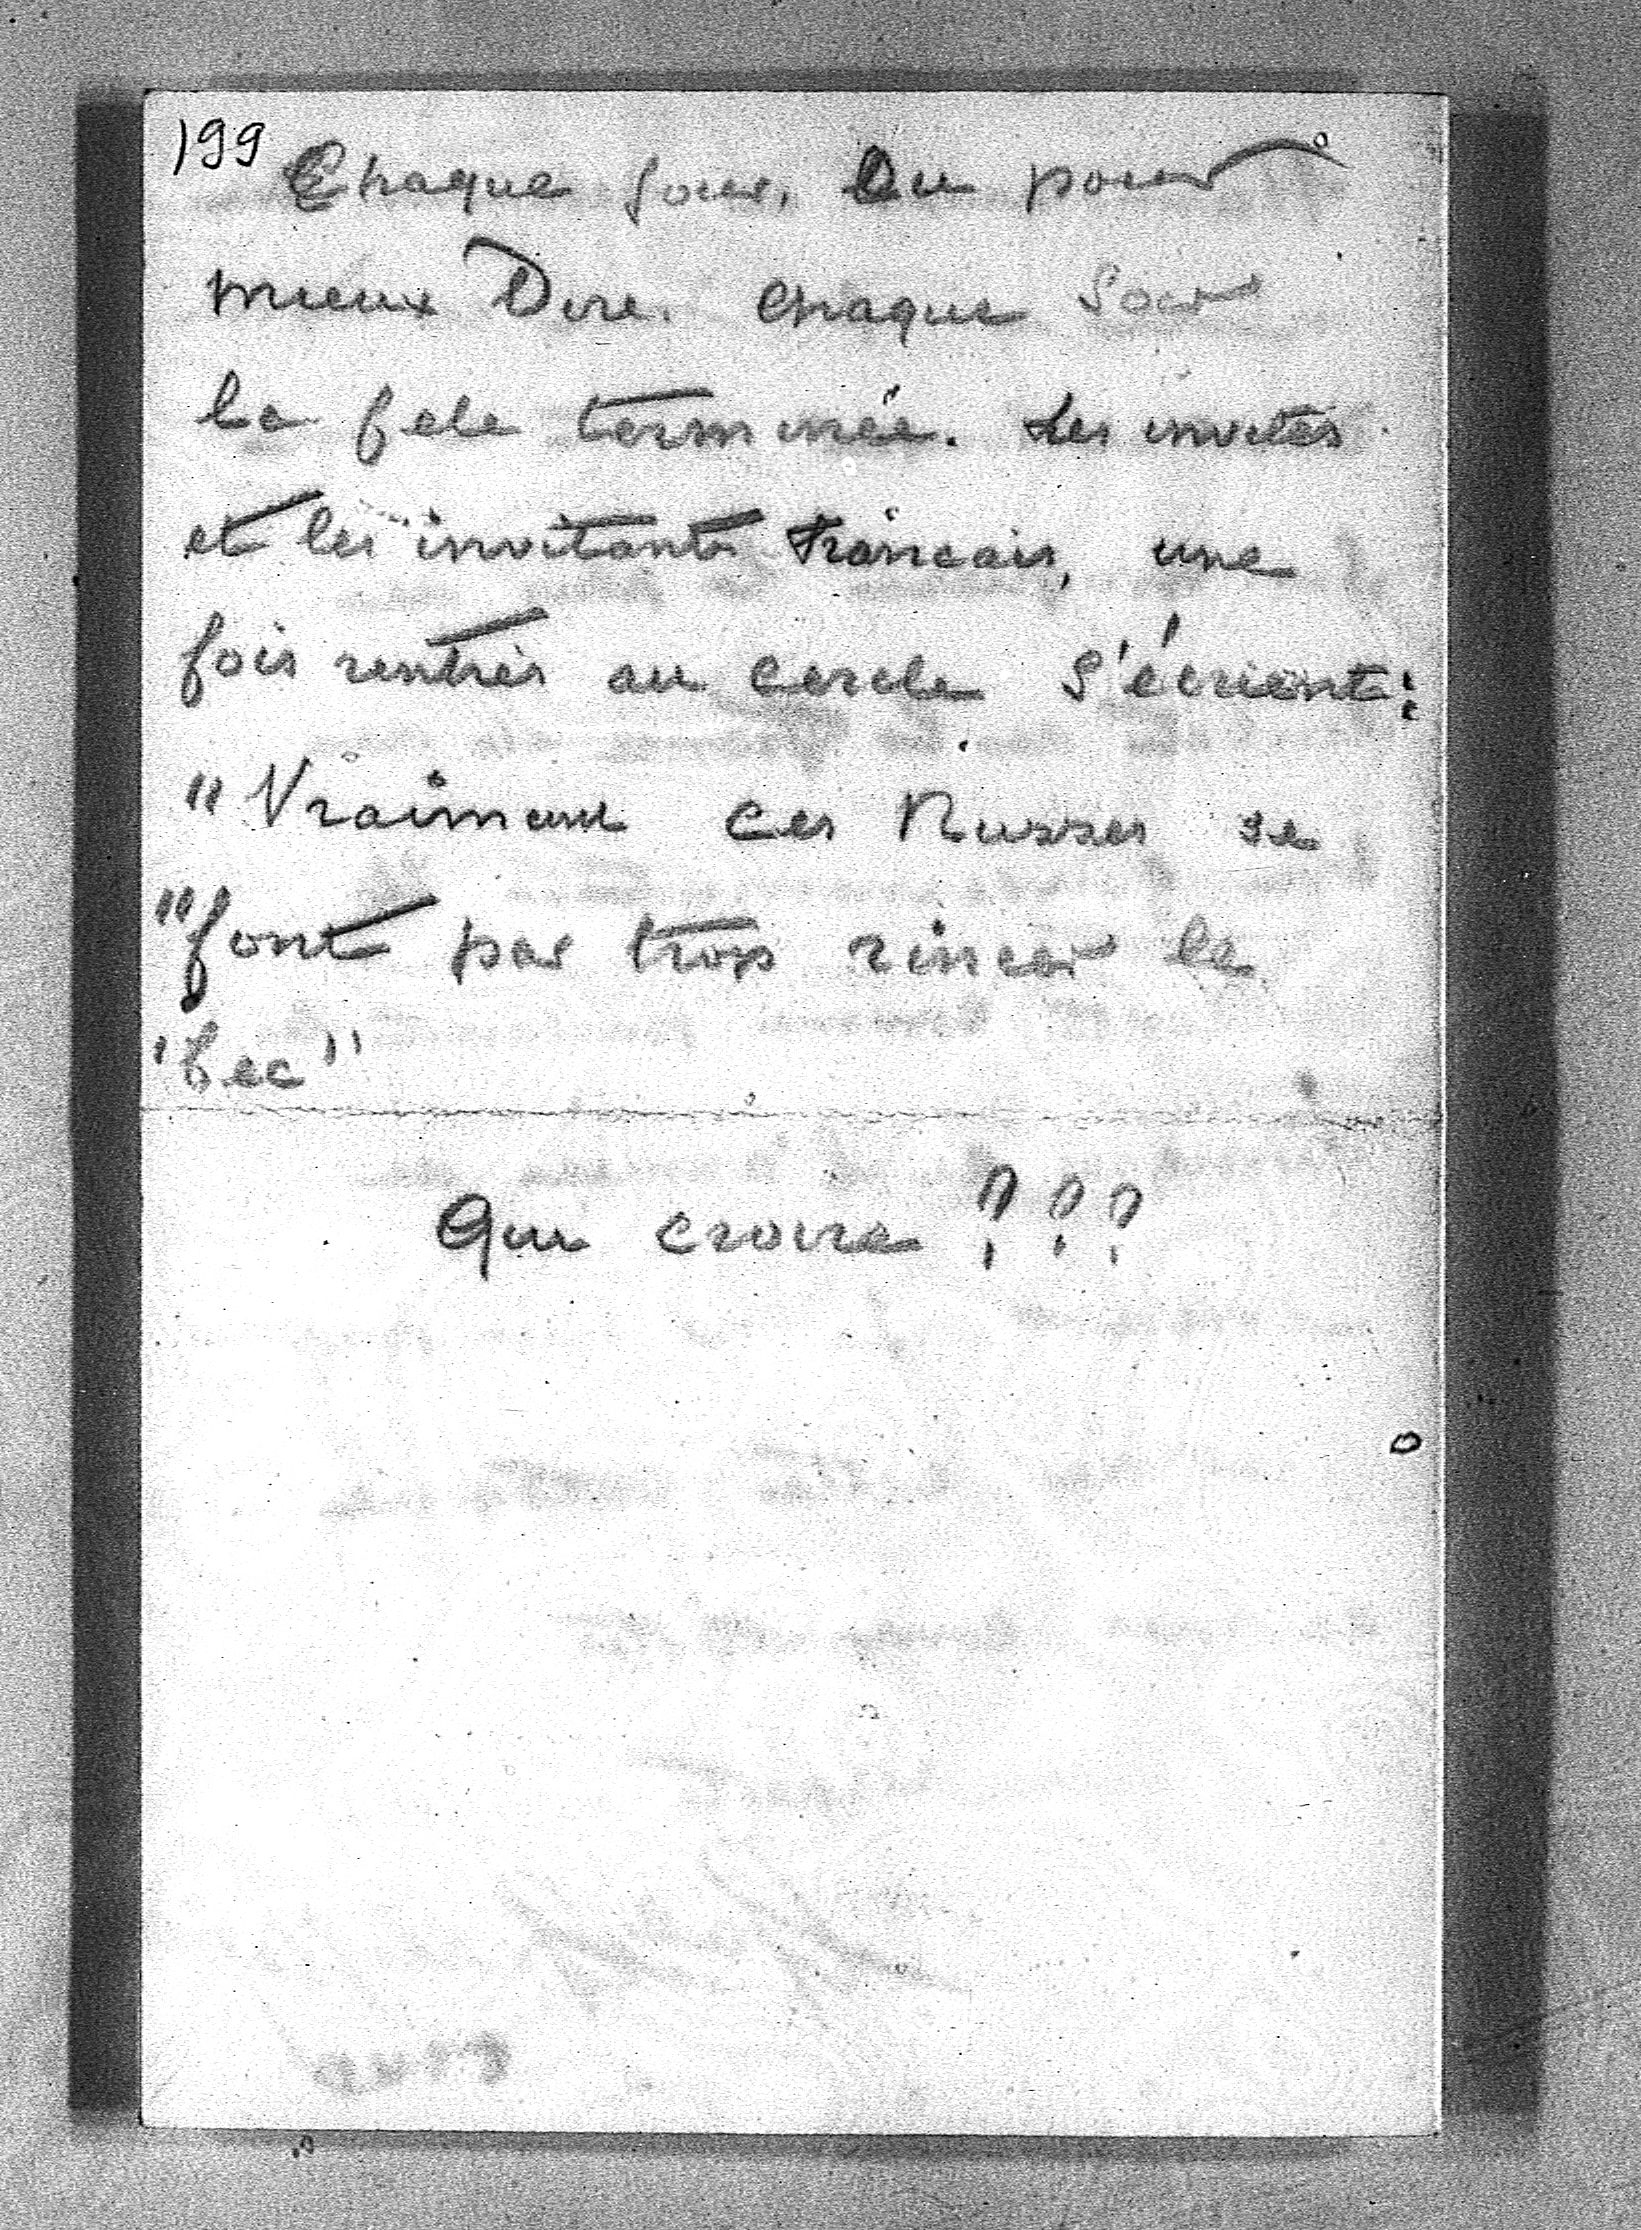 199
Chaque jour, Ou pour
mieux Dire. chaque Soir
la fete terminée. Les invités
et les invitants Francais, une
fois rentrés au cercle S'écrient:
"Vraiment ces Russes se
"font par trop rincer le
"bec"
Que croire ???